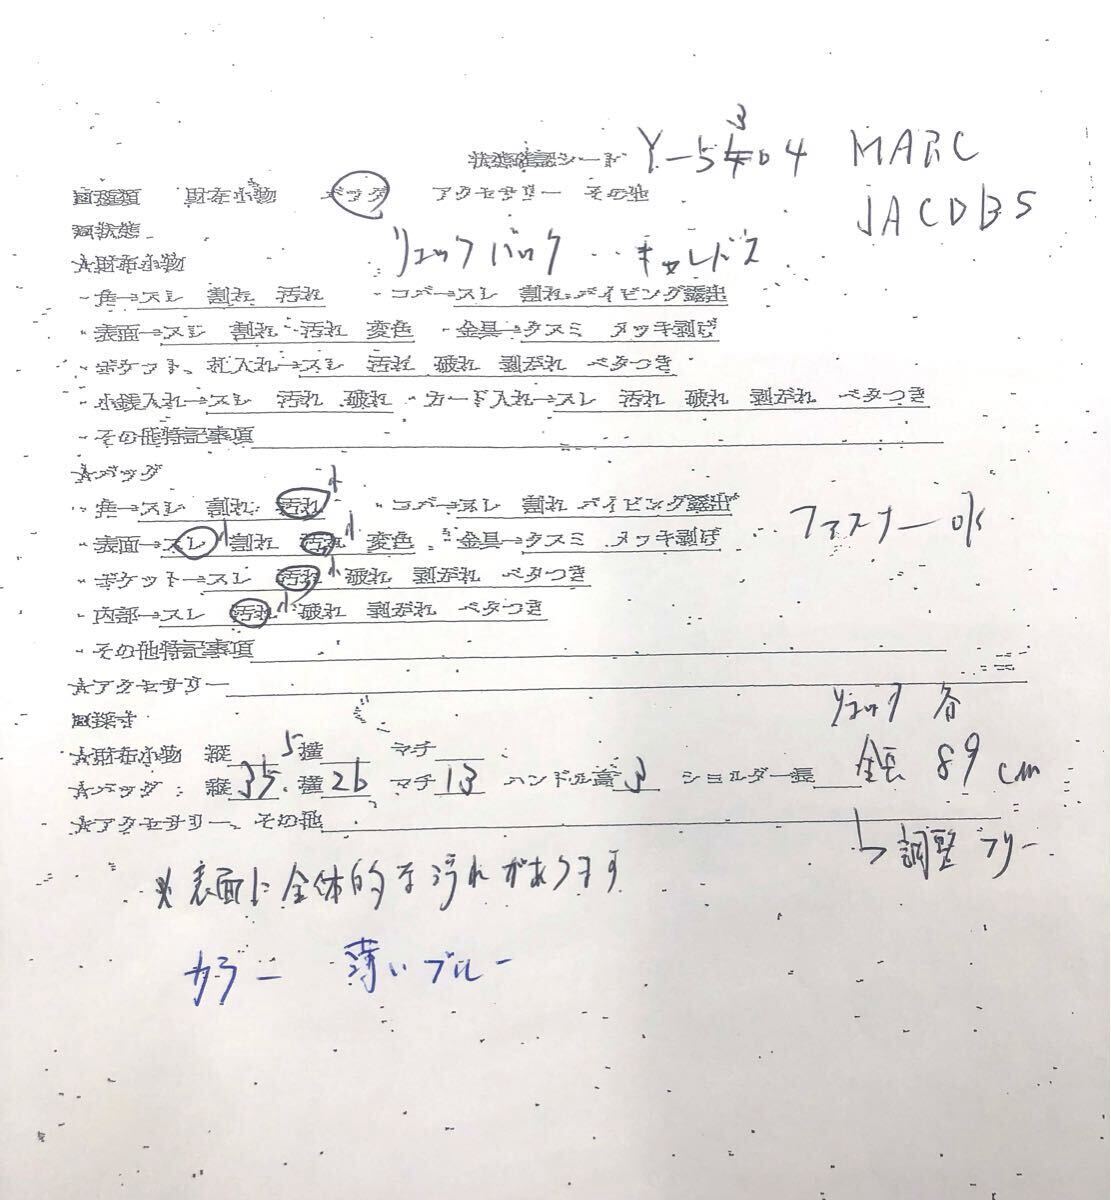 状態確認シート Y-5304 MARC JACOBS
■種類 財布小物 バッグ アクセサリー その他
■状態
リュックバック キャンバス
★財布小物
・角→スレ 割れ 汚れ ・コバ→スレ 割れ パイピング露出
・表面→スレ 割れ 汚れ 変色 ・金具→クスミ メッキ剥げ
・ポケット、札入れ→スレ 汚れ 破れ 剥がれ ベタつき
・小銭入れ→スレ 汚れ 破れ ・カード入れ→スレ 汚れ 破れ 剥がれ ベタつき
・その他特記事項
★バッグ
・角→スレ 割れ 汚れ小 ・コバ→スレ 割れ パイピング露出
・表面→スレ小 割れ 汚れ小 変色 ・金具→クスミ メッキ剥げ ファスナー小
・ポケット→スレ 汚れ小 破れ 剥がれ ベタつき
・内部→スレ 汚れ小 破れ 剥がれ ベタつき
・その他特記事項
★アクセサリー
■採寸 リュック
★財布小物 縦 横 マチ
★バッグ: 縦35.5 横26 マチ13 ハンドル高3 ショルダー長 全長 89cm
★アクセサリー、その他
↳調整フリー
※表面に全体的な汚れがあります
カラー 薄いブルー